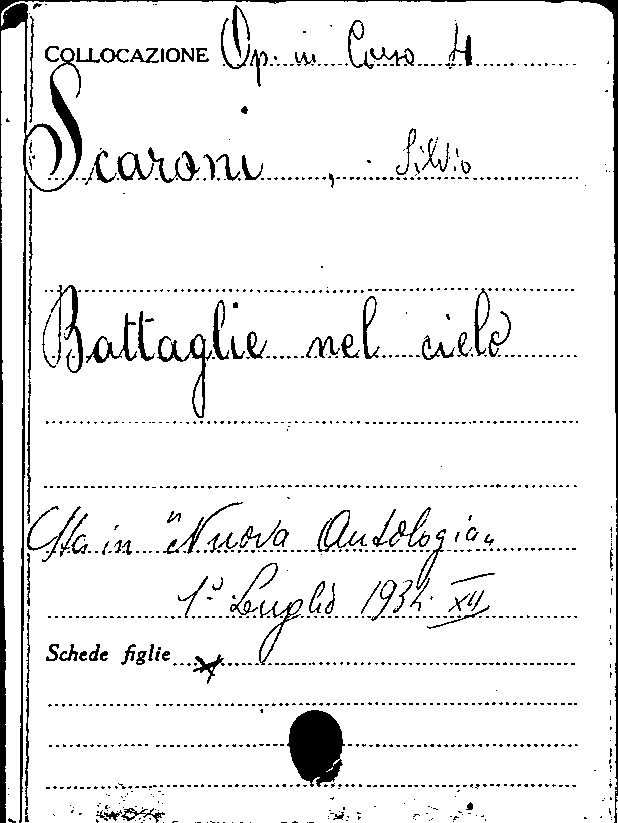 COLLOCAZIONE Op. in Corso 4
Scaroni, Silvio
Battaglie nel cielo
Sta in "Nuova Antologia"
1° Luglio 1934. XII
Schede figlie